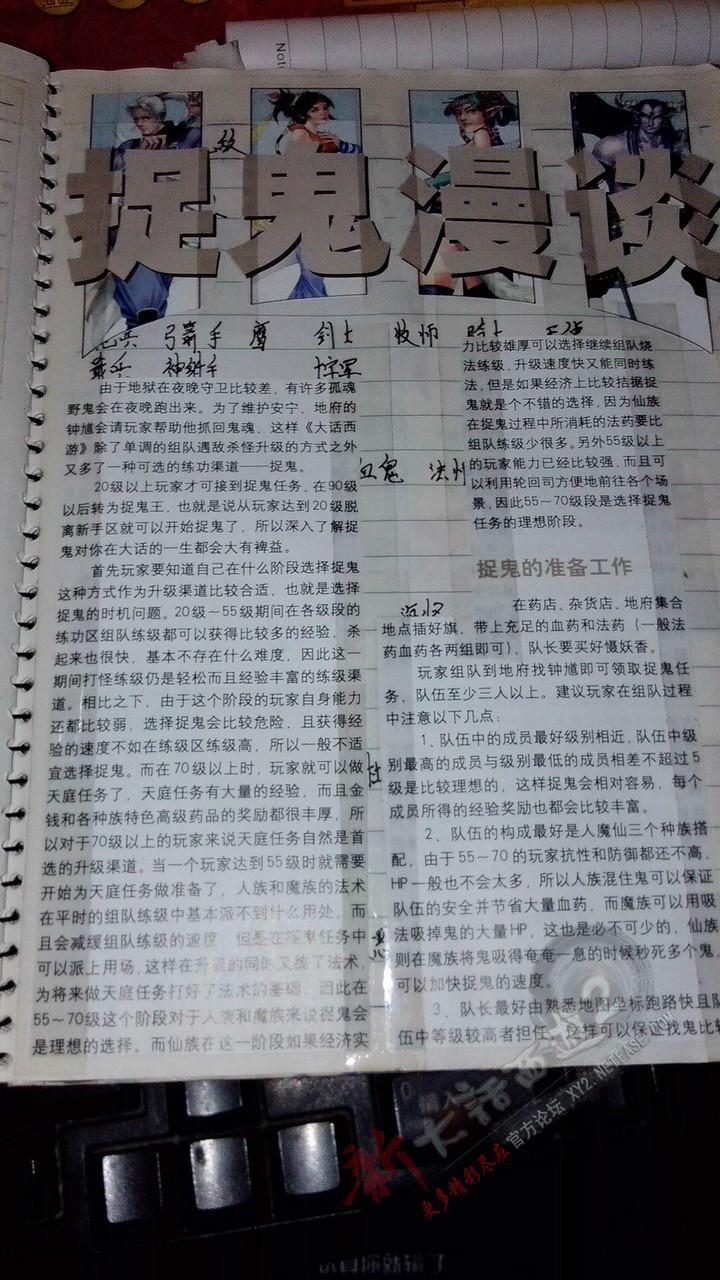 Note
捉鬼漫谈
弓箭手 鹰 剑士 牧师
神射手
由于地狱在夜晚守卫比较差，有许多孤魂
野鬼会在夜晚跑出来。为了维护安宁，地府的
钟馗会请玩家帮助他抓回鬼魂，这样《大话西
游》除了单调的组队遇敌杀怪升级的方式之外
又多了一种可选的练功渠道——捉鬼。
20级以上玩家才可接到捉鬼任务，在90级
以后转为捉鬼王，也就是说从玩家达到20级脱
离新手区就可以开始捉鬼了，所以深入了解捉
鬼对你在大话的一生都会大有裨益。
首先玩家要知道自己在什么阶段选择捉鬼
这种方式作为升级渠道比较合适，也就是选择
捉鬼的时机问题。20级～55级期间在各级段的
练功区组队练级都可以获得比较多的经验，杀
起来也很快，基本不存在什么难度，因此这一
期间打怪练级仍是轻松而且经验丰富的练级渠
道。相比之下，由于这个阶段的玩家自身能力
还都比较弱，选择捉鬼会比较危险，且获得经
验的速度不如在练级区练级高，所以一般不适
宜选择捉鬼。而在70级以上时，玩家就可以做
天庭任务了，天庭任务有大量的经验，而且金
钱和各种族特色高级药品的奖励都很丰厚，所
以对于70级以上的玩家来说天庭任务自然是首
选的升级渠道。当一个玩家达到55级时就需要
开始为天庭任务做准备了，人族和魔族的法术
在平时的组队练级中基本派不到什么用处，而
且会减缓组队练级的速度，但是在捉鬼任务中
可以派上用场，这样在升级的同时又练了法术，
为将来做天庭任务打好了法术的基础，因此在
55～70级这个阶段对于人族和魔族来说捉鬼会
是理想的选择。而仙族在这一阶段如果经济实
力比较雄厚可以选择继续组队烧
法练级，升级速度快又能同时练
法，但是如果经济上比较拮据捉
鬼就是个不错的选择，因为仙族
在捉鬼过程中所消耗的法药要比
组队练级少很多。另外55级以上
的玩家能力已经比较强，而且可
以利用轮回司方便地前往各个场
景，因此55～70级段是选择捉鬼
任务的理想阶段。
捉鬼的准备工作
在药店、杂货店、地府集合
地点插好旗，带上充足的血药和法药（一般法
药血药各两组即可），队长要买好慑妖香。
玩家组队到地府找钟馗即可领取捉鬼任
务，队伍至少三人以上。建议玩家在组队过程
中注意以下几点：
1、队伍中的成员最好级别相近，队伍中级
别最高的成员与级别最低的成员相差不超过5
级是比较理想的，这样捉鬼会相对容易，每个
成员所得的经验奖励也都会比较丰富。
2、队伍的构成最好是人魔仙三个种族搭
配，由于55～70的玩家抗性和防御都还不高，
HP一般也不会太多，所以人族混住鬼可以保证
队伍的安全并节省大量血药，而魔族可以用吸
法吸掉鬼的大量HP，这也是必不可少的，仙族
则在魔族将鬼吸得奄奄一息的时候秒死多个鬼，
可以加快捉鬼的速度。
3、队长最好由熟悉地图坐标跑路快且队
伍中等级较高者担任，这样可以保证找鬼比较
新大话西游2
官方论坛 XY2.NETEASE.COM
更多精彩尽在